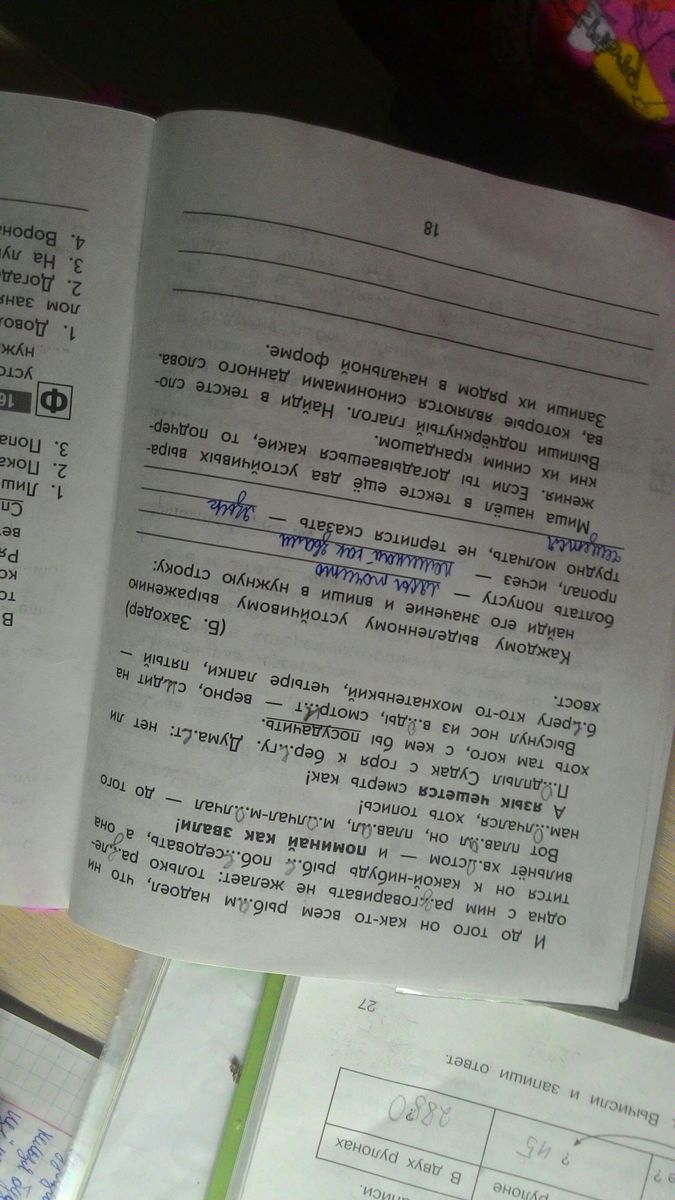 И до того он как-то всем рыб..ам надоел, что ни
одна с ним ра..зговаривать не желает: только ра..зле-
тится он к какой-нибудь рыб..е поб..еседовать, а она
вильнёт хв..остом — и поминай как звали!
Вот плав..ал он, плав..ал, м..олчал-м..олчал — до того
нам..олчался, хоть топись!
А язык чешется смерть как!
П..одплыл Судак с горя к бер..егу. Дума..ет: нет ли
хоть там кого, с кем бы посудачить.
Высунул нос из в..оды, смотр..ит — верно, с..идит на
б..ерегу кто-то мохнатенький, четыре лапки, пятый —
хвост.
(Б. Заходер)
Каждому выделенному устойчивому выражению
найди его значение и впиши в нужную строку:
болтать попусту — лясы точить
пропал, исчез — поминай как звали
трудно молчать, не терпится сказать — язык
чешется
Миша нашёл в тексте ещё два устойчивых выра-
жения. Если ты догадываешься какие, то подчер-
кни их синим карандашом.
Выпиши подчёркнутый глагол. Найди в тексте сло-
ва, которые являются синонимами данного слова.
Запиши их рядом в начальной форме.
18
1. Лиш
2. Пока
3. Попа
Ф
16
1. Довол
лом заня
2. Догад
3. На лу
4. Ворон
27
Вычисли и запиши ответ.
В двух рулонах
рулоне
? 45